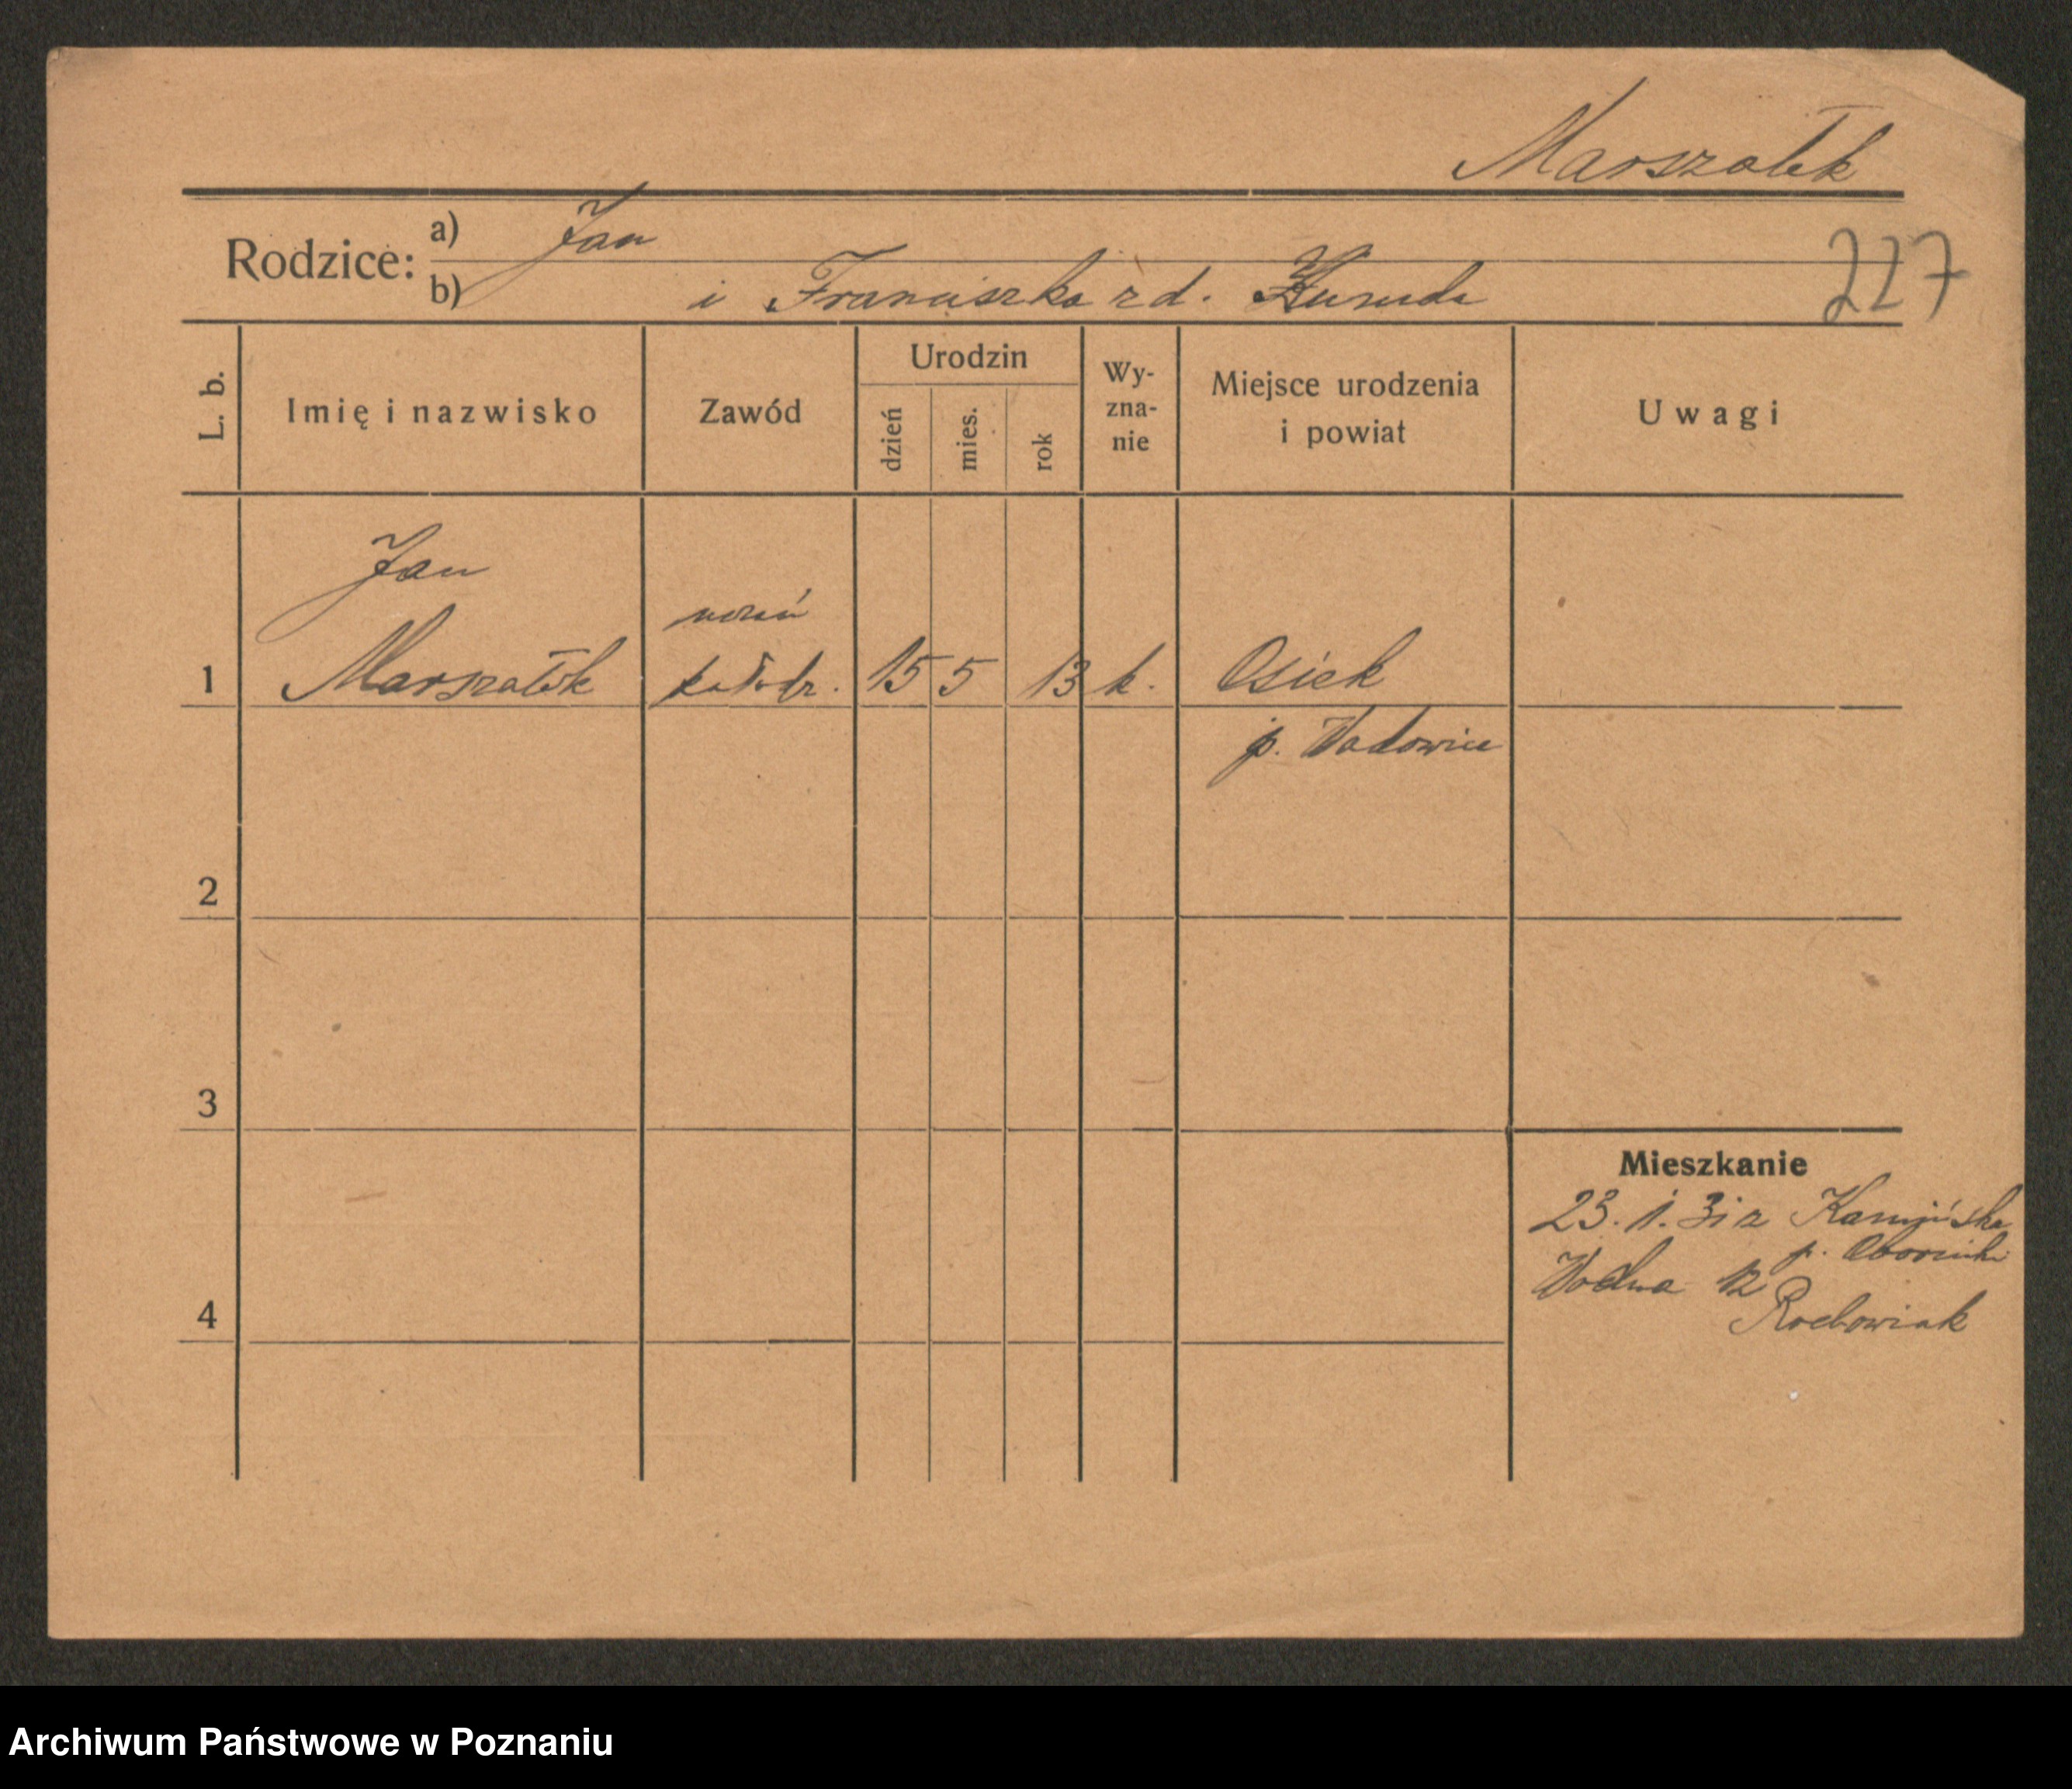 Marszałek
Rodzice:
a) Jan
b) i Franciszka z d.
227
L. b.
Imię i nazwisko
Zawód
Urodzin
dzień
mies.
rok
Wy-
zna-
nie
Miejsce urodzenia
i powiat
Uwagi
Jan
uczeń
1 Marszałek kołodz. 15 5 13 k. Osiek
p. Wadowice
2
3
Mieszkanie
23. 1. 31 z
p. Oborniki
Wodna 12
4
Archiwum Państwowe w Poznaniu